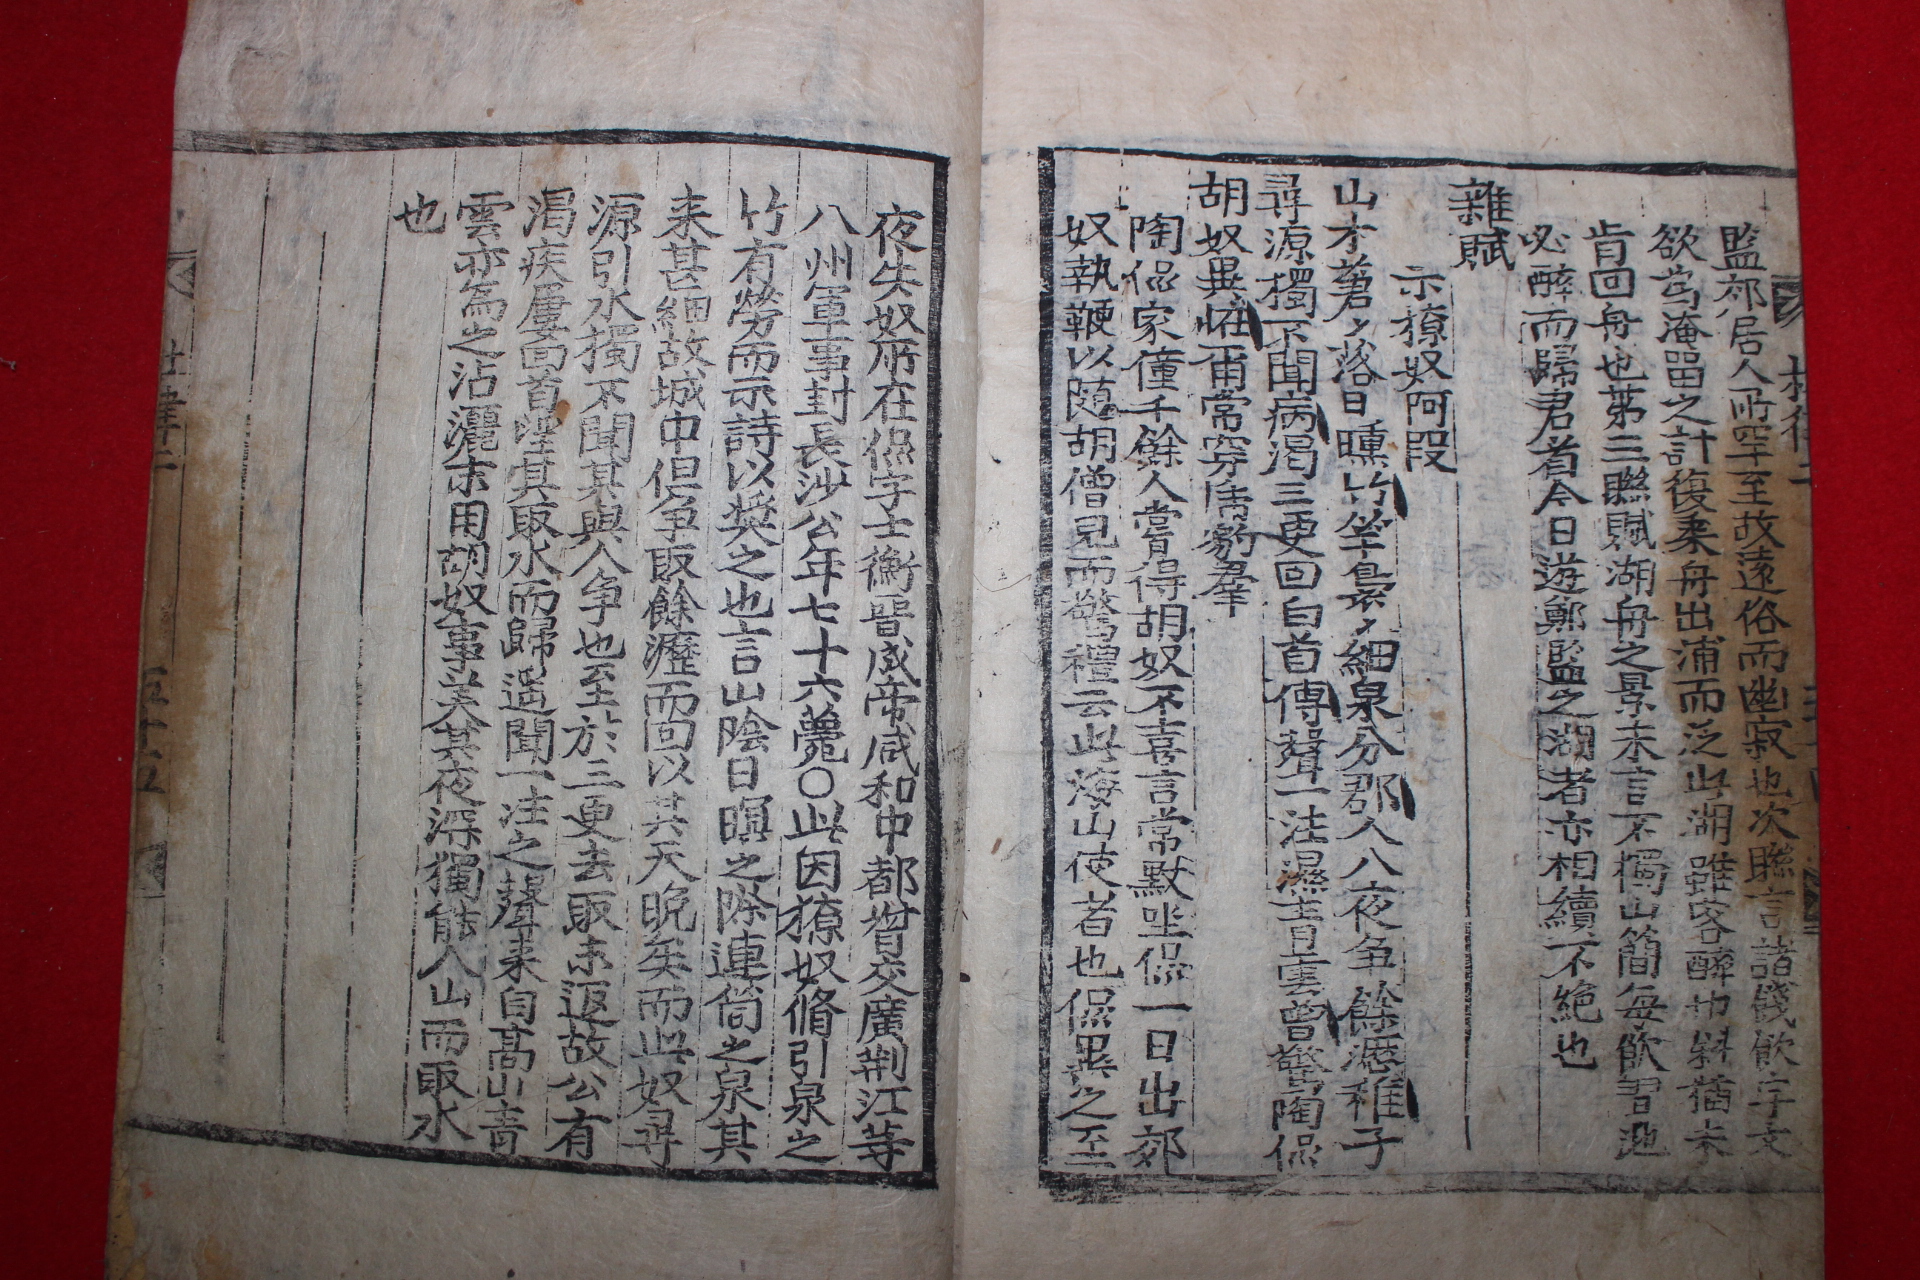 監郊居人所罕至故遠俗而幽寂也次聯言諸錢飲字文
欲爲淹留之計復来舟出浦而泛此湖雖客醉也斜猶未
肯回舟也第三聯賦湖舟之景未言不獨山簡每飲習池
必醉而歸君看今日遊鄭監之湖者亦相續不絶也
雜賦
示獠奴阿段
山木蒼〃落日曛竹竿褭〃細泉分郡人入夜争餘瀝稚子
尋源獨不聞病渴三更回白首傳聲一注濕青雲曾驚陶侃
胡奴異怪爾常穿虎豹羣
陶侃家僮千餘人嘗得胡奴不喜言常默坐侃一日出郊
奴執鞭以随胡僧見而驚禮云此海山使者也侃異之至
夜失奴所在侃字士衡晉成帝咸和中都督交廣荆江等
八州軍事封長沙公年七十六薨〇此因獠奴脩引泉之
竹有勞而示詩以奖之也言山陰日暝之際連筒之泉其
来甚細故城中但争取餘瀝而回以其天晩矣而此奴尋
源引水獨不聞其與人争也至於三更去取未返故公有
渴疾屢回首望其取水而歸遥聞一注之聲来自高山青
雲亦爲之沾灑末用胡奴事美其夜深獨能入山而取水
也
律二
五十五